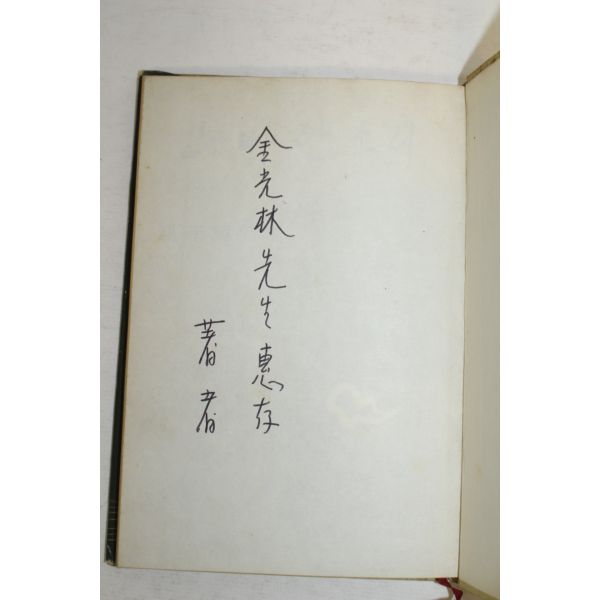 金光林先生惠存
著者